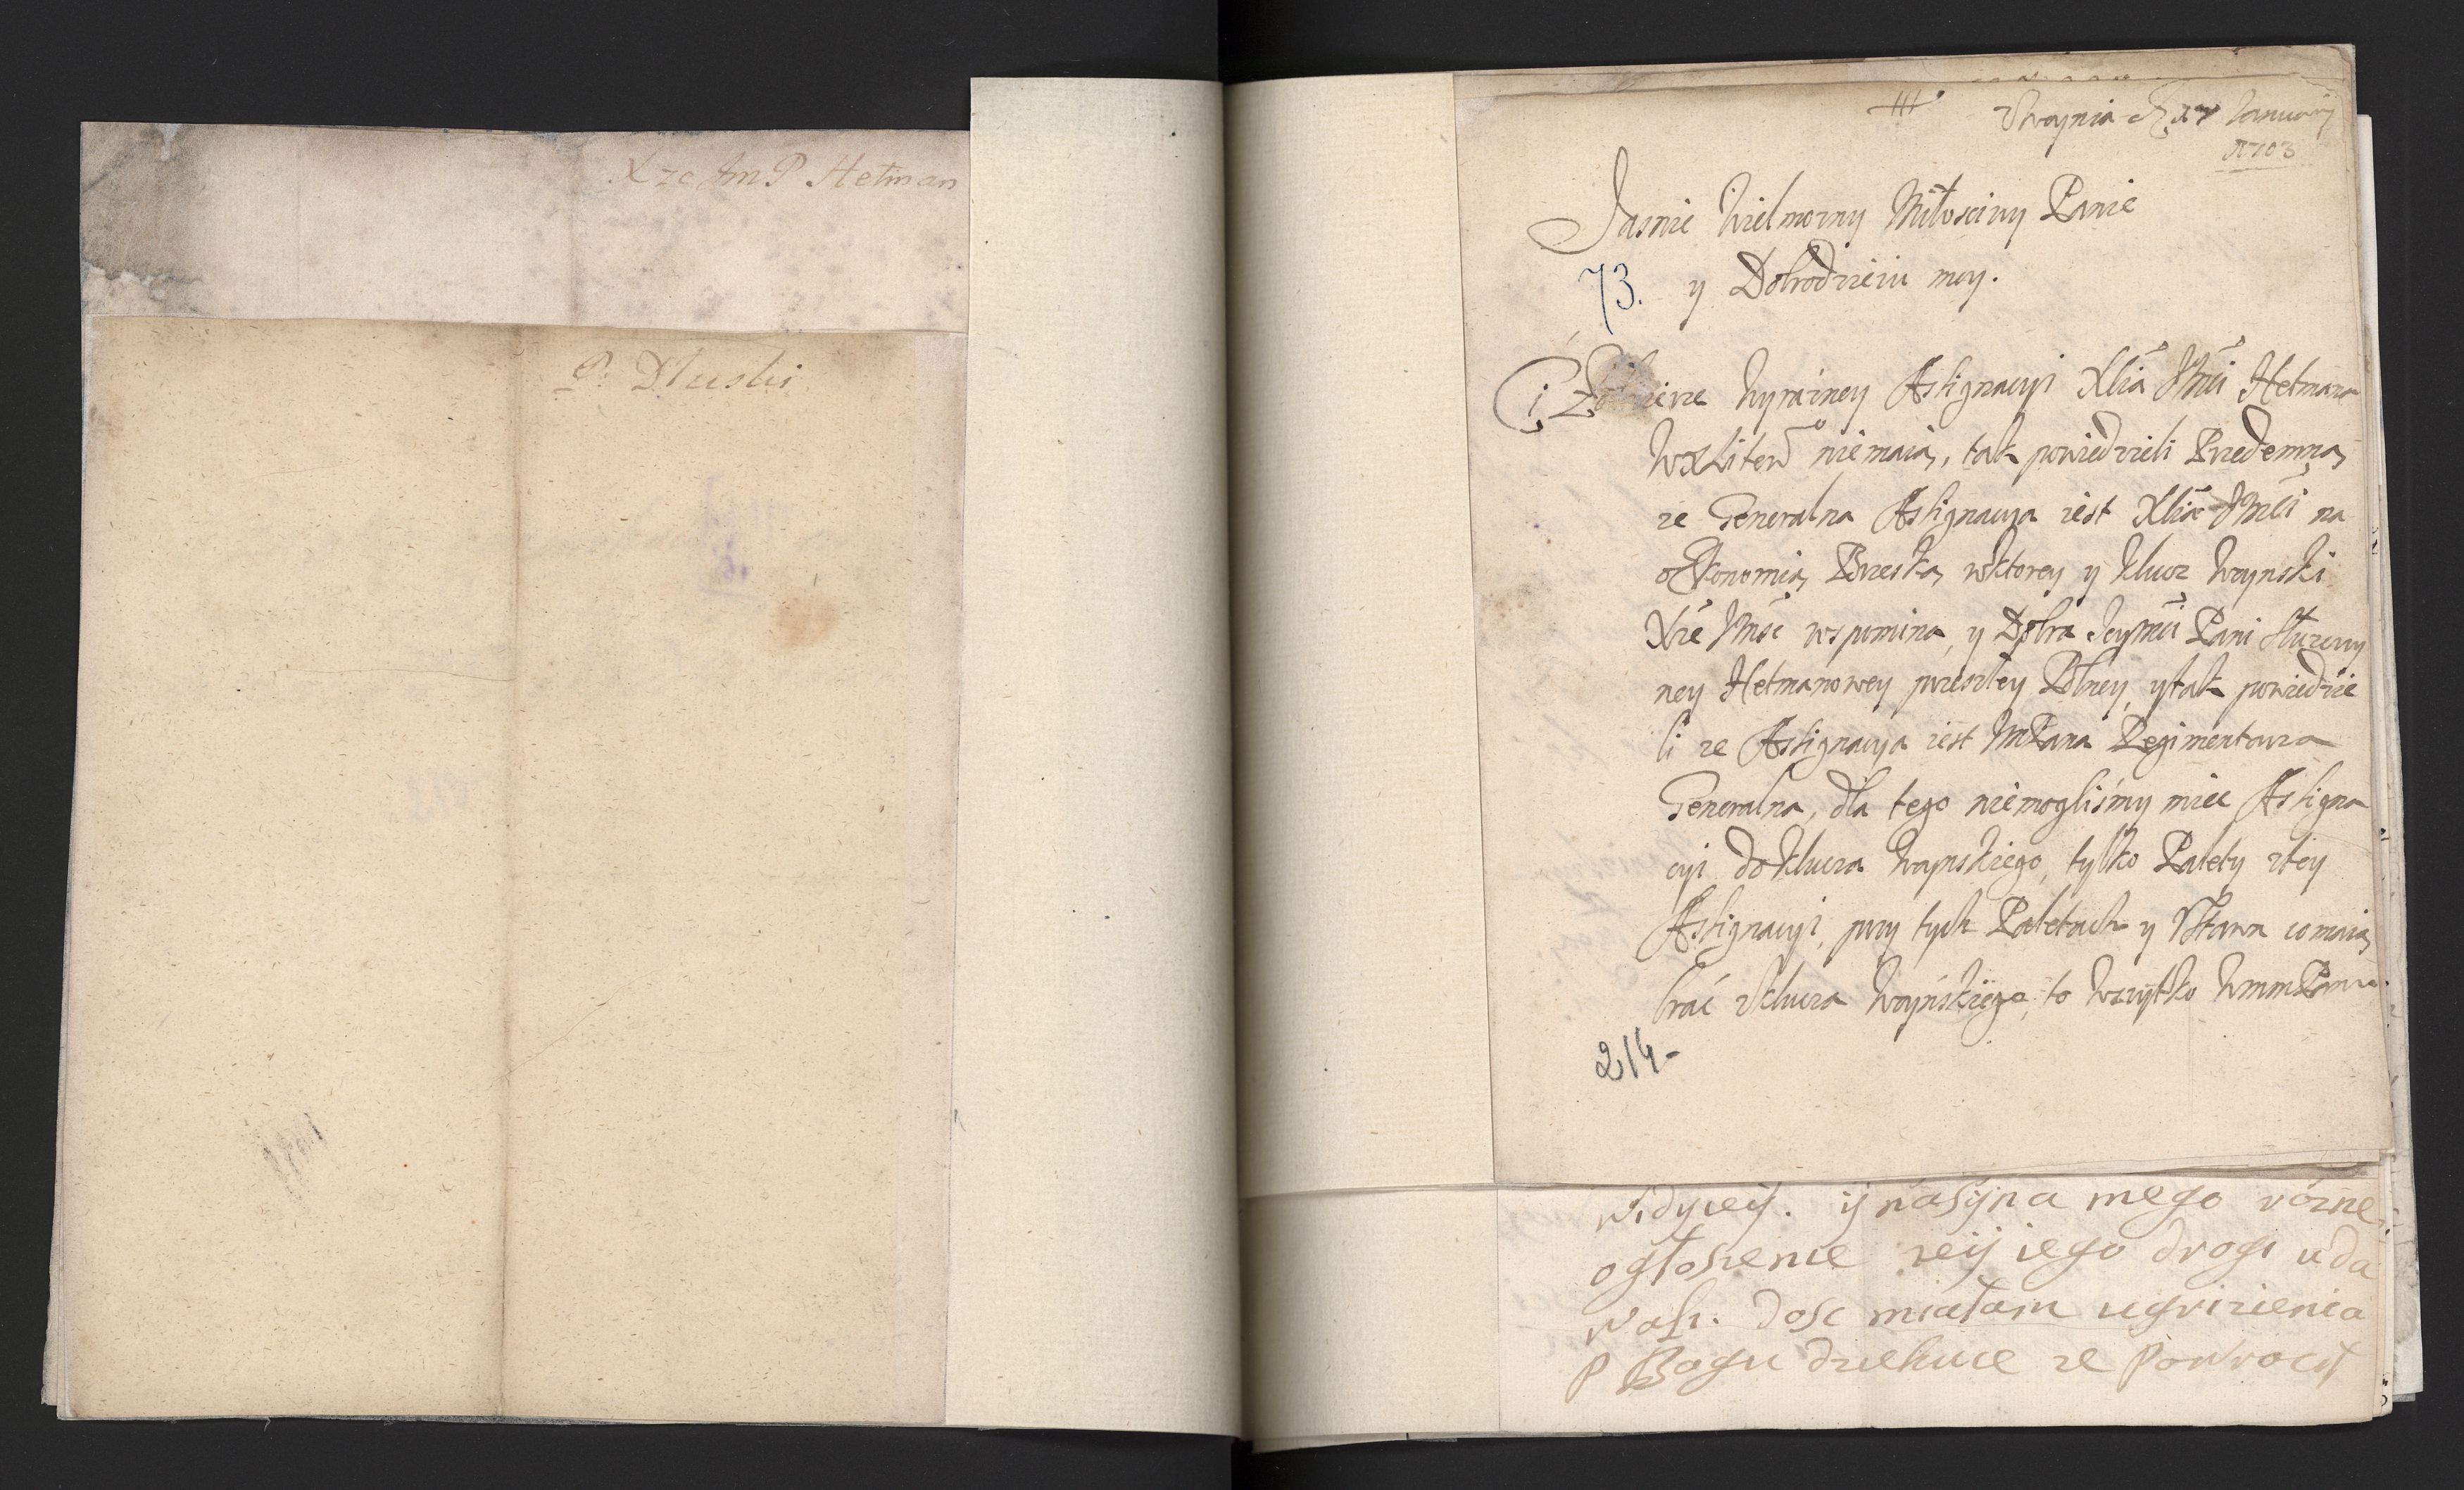 Xze Jm P Hetman
P. Dłuski
z Woynia d. 27 January
1703
Jasnie Wielmozny Miłosciwy Panie
73. y Dobrodzieiu moy.
Ci Zołnierze Wyrazney Assignacyi Xcia Jmci Hetmana
WXLitew niemaią, tak powiedzieli Przedemną,
ze Generalna Assignacya iest Xcia Jmci na
oekonomią Brzeską, wktorey y klucz Woynski
Xze Jmsc wspomina, y Dobra Jeymci Pani Słuzewy
ney Hetmanowey przeszłey Polney, ytak powiedzie
li ze Assignacya iest JmPana Regimentarza
Generalna, dla tego niemogliśmy miec Assigna
cyi do klucza Woynskiego, tylko Palety ztey
Assignacyi, przy tych Paletach y Ustawa co maią
brać zklucza Woyńskiego, to wszytko WmmPanu
214-
widycey. ij nasyna mego rozne
ogłoszenie zeij iego drogi uda
wali. dosc miałam ugrizienia
P Bogu dziekuie ze powrocił